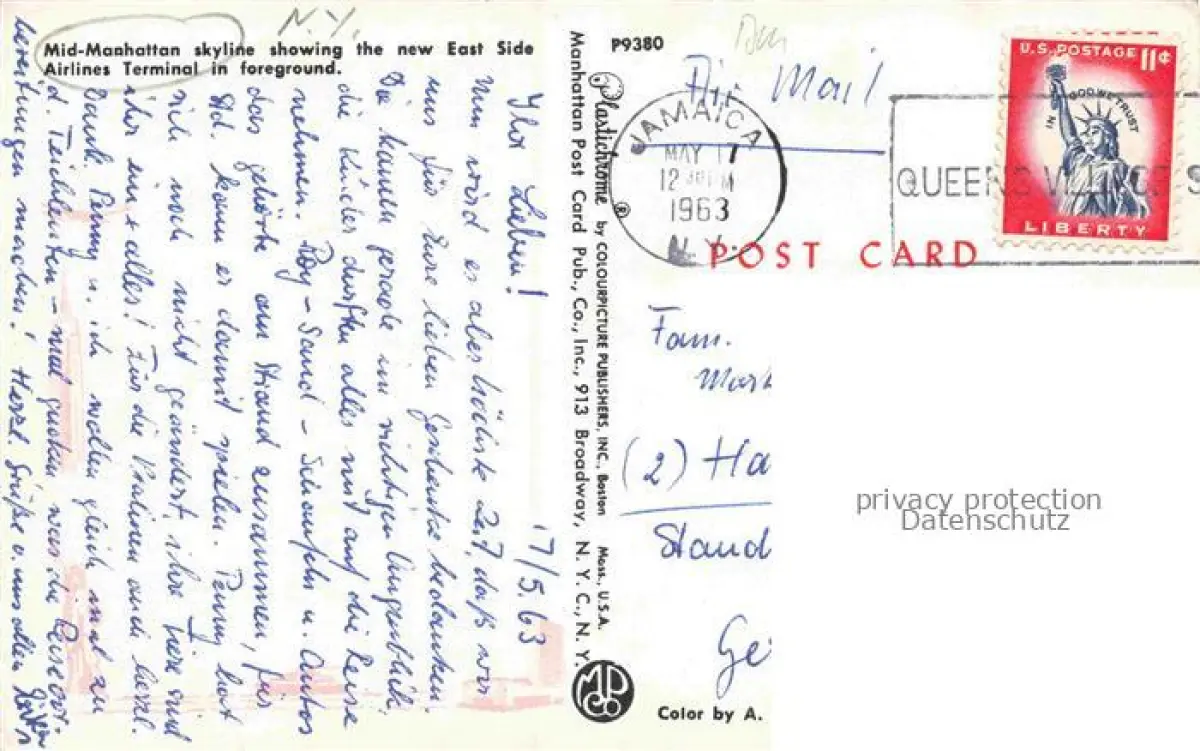 N.Y.
Mid-Manhattan skyline showing the new East Side
Airlines Terminal in foreground.
17/5.63
Ihr Lieben!
Nun wird es aber höchste Zeit, daß wir
uns für Eure lieben Geschenke bedanken.
Die kamen gerade im richtigen Augenblick,
die Kinder durften alles mit auf die Reise
nehmen. Roy - Sand - Schaufeln u. Autos
das gehörte am Strand zusammen, für
Std. kann er damit spielen. Penny hat
sich noch nicht geändert, ihre Tiere sind
ihr ein + alles! Für die Pralinen auch herzl.
Dank. Penny u. ich wollen gleich mal zu
d. Teichlensten - mal gucken was die Reisevor-
bereitungen machen! Herzl. Grüße v. uns allen
P9380
Plastichrome ® by COLOURPICTURE PUBLISHERS, INC., Boston Mass., U.S.A.
Manhattan Post Card Pub., Co., Inc., 913 Broadway, N. Y. C., N. Y.
MPC Co
Air Mail
JAMAICA
MAY 17
12 PM
1963
N.Y.
QUEENS VILLAGE
U.S. POSTAGE 11¢
IN GOD WE TRUST
LIBERTY
POST CARD
Fam.
Mar
(2) Ha
Stand
Ge
privacy protection
Datenschutz
Color by A.